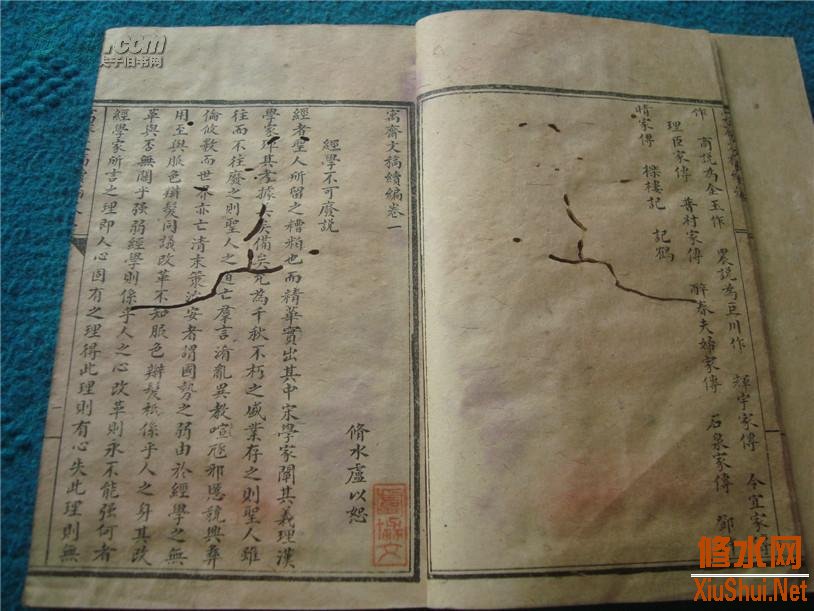 作 商説為金玉作 農説為巨川作 輝宇家傳 令宜家
理臣家傳 普村家傳 醉春夫婦家傳 石泉家傳 鄧
晴家傳 櫟樓記 記鶴
寓齋文稿續編卷一
脩水盧以恕
經學不可廢説
經者聖人所留之糟粕也而精華實出其中宋學家闡其義理漢
學家 其考據 矣備矣 為千秋不朽之盛業存之則聖人雖
往而不往廢之則聖人之道亡羣言淆亂異教喧 邪慝競興彝
倫攸斁而世界亦亡清末策治安者謂國勢之弱由於經學之無
用至與服色辮髮同議改革不知服色辮髮衹係乎人之身其改
革與否無關乎强弱經學則係乎人之心改革則永不能强何者
經學家所言之理即人心固有之理得此理則有心失此理則無
修水网
XiuShui.Net